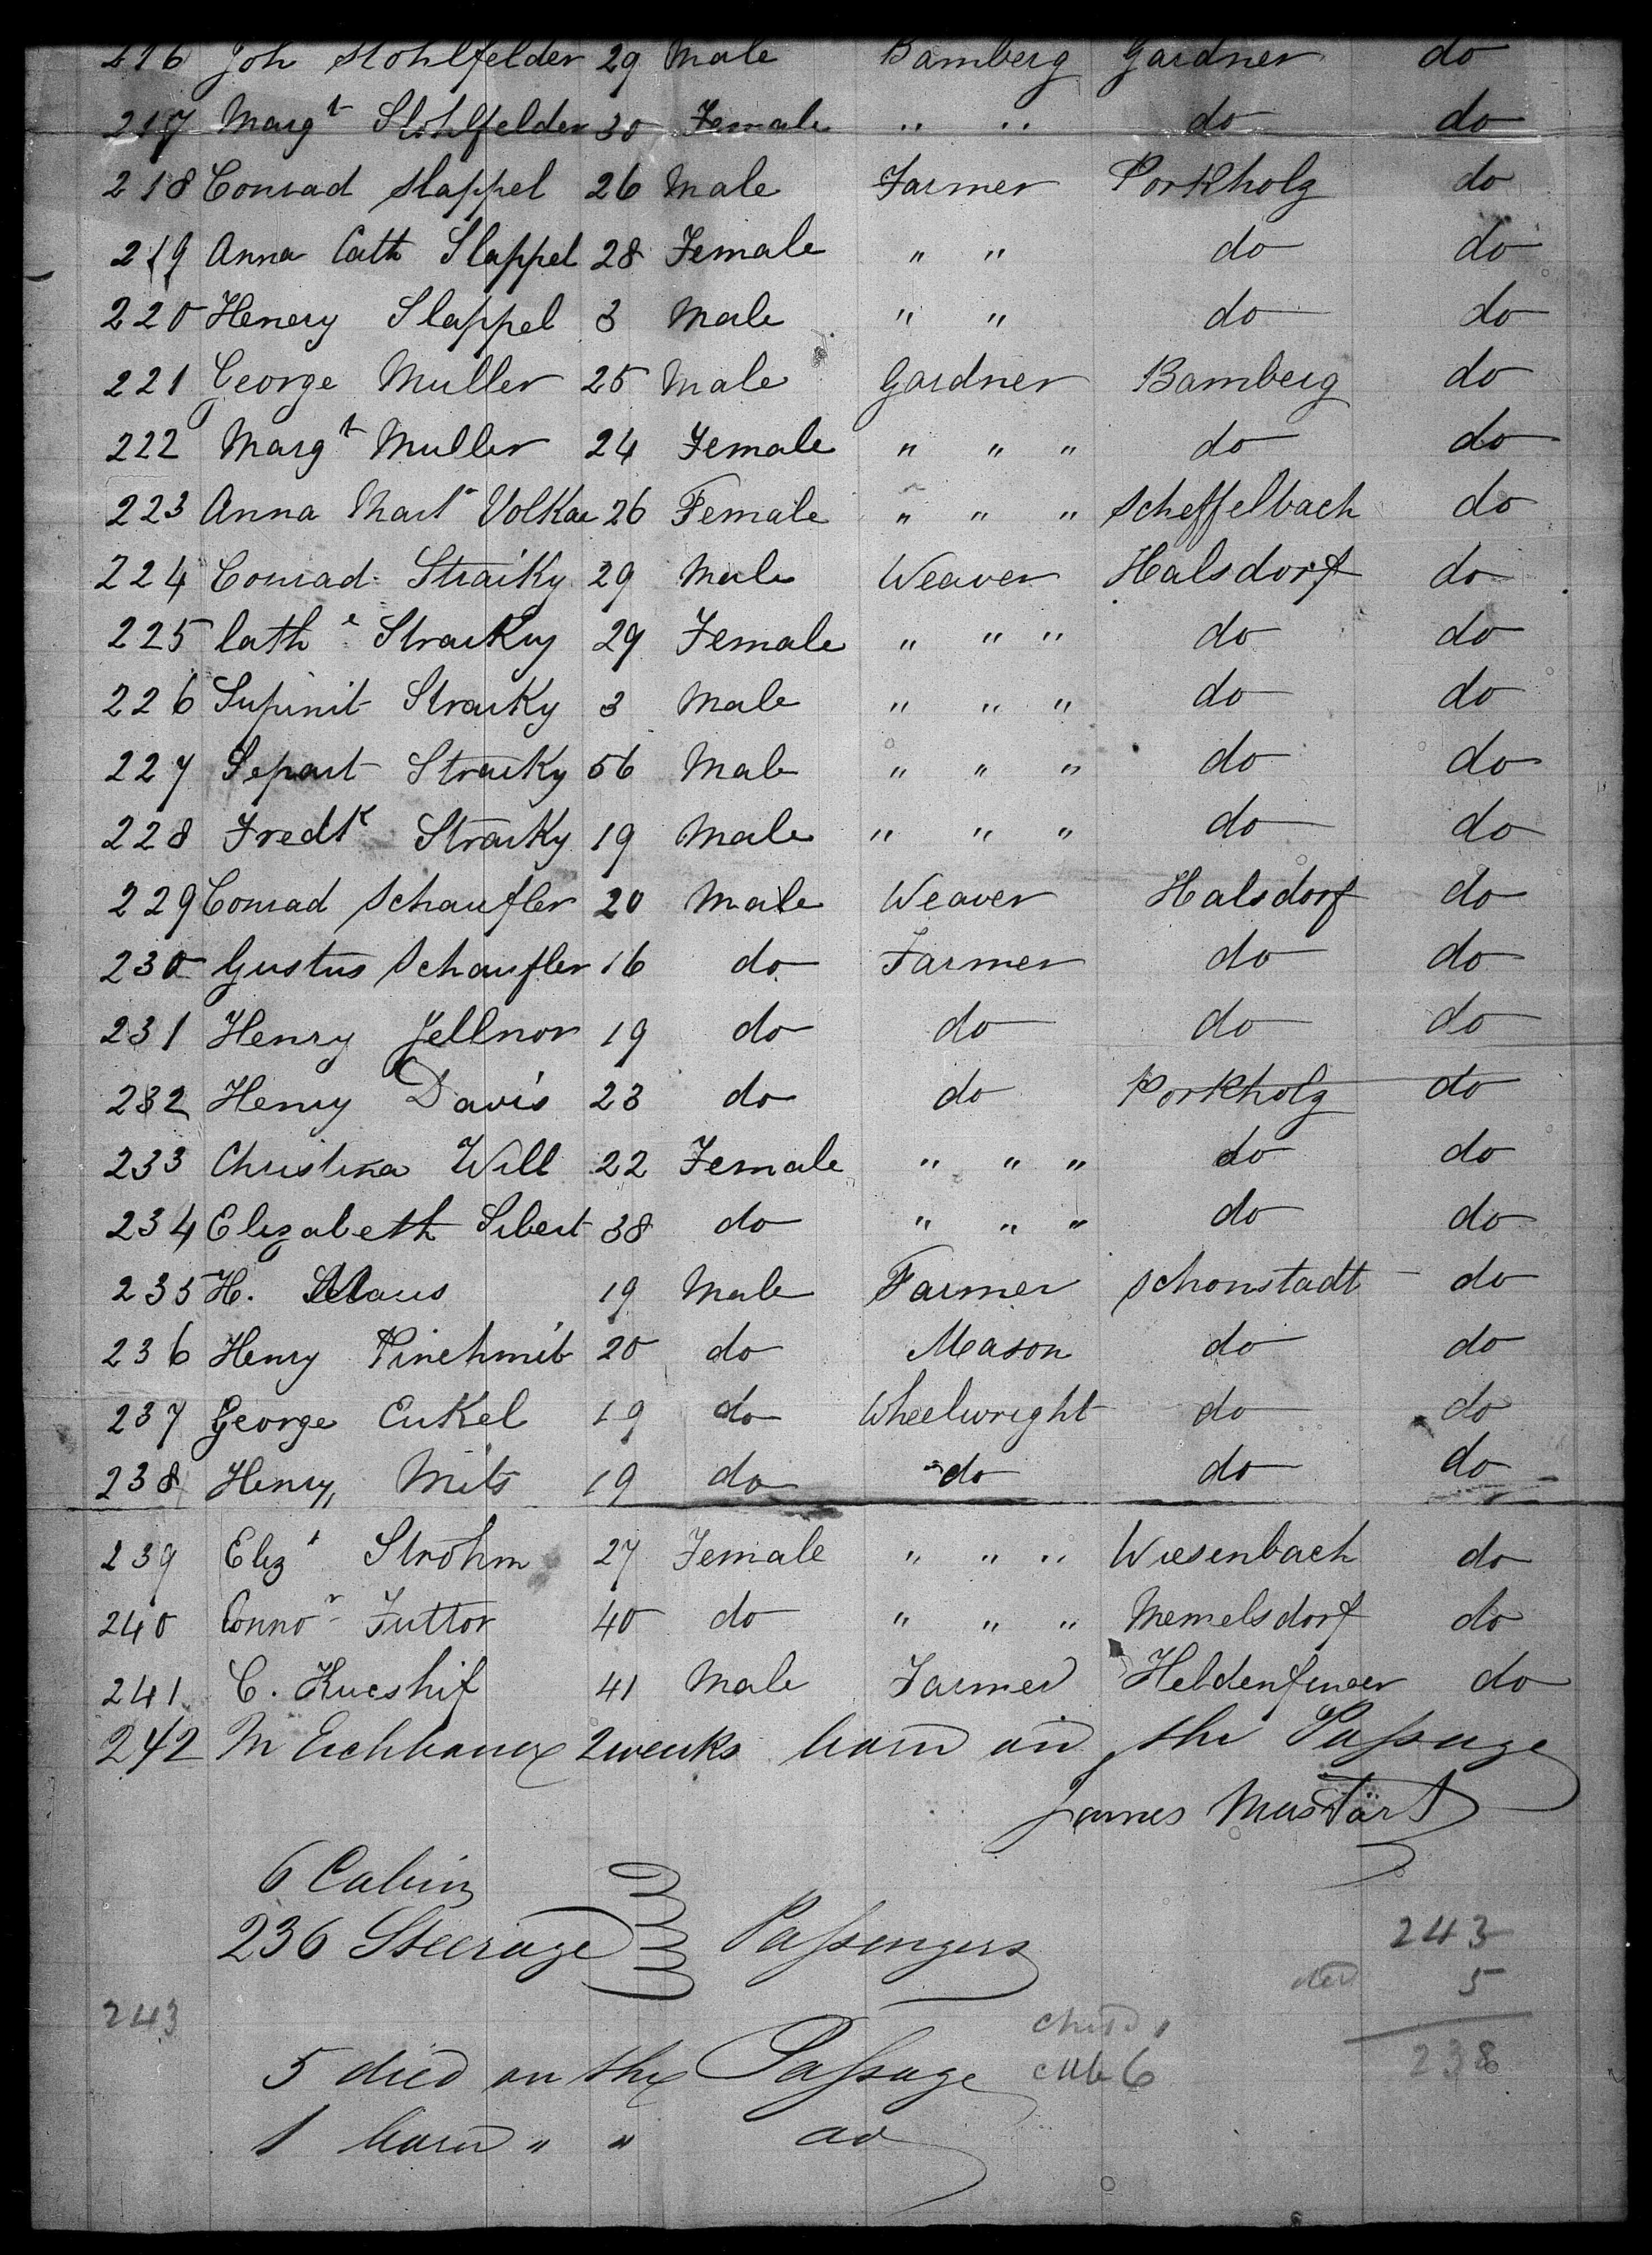 216 Joh Stohlfelder 29 Male Bamberg Gardner do
217 Margt Stohlfelder 30 Female " " do do
218 Conrad Slappel 26 Male Farmer Porkholz do
219 Anna Cath Slappel 28 Female " " do do
220 Henery Slappel 3 Male " " do do
221 George Muller 25 Male Gardner Bamberg do
222 Margt Muller 24 Female " " " do do
223 Anna Volkae 26 Female " " " Scheffelbach do
224 Conrad Straiky 29 Male Weaver Halsdorf do
225 Cathe Straiky 29 Female " " " do do
226 Supinit Straiky 3 Male " " " do do
227 Separt Straiky 56 Male " " " do do
228 Fredk Straiky 19 Male " " " do do
229 Conrad Schaufler 20 Male Weaver Halsdorf do
230 Gustus Schaufler 16 do Farmer do do
231 Henry Jellnor 19 do do do do
232 Henry Davis 23 do do Porkholz do
233 Christina Will 22 Female " " " do do
234 Elizabeth Sibert 38 do " " " do do
235 H. 19 Male Farmer Schonstadt do
236 Henry Pinchmit 20 do Mason do do
237 George Eukel 19 do Wheelwright do do
238 Henry Mits 19 do do do do
239 Elizt Strohm 27 Female " " " Wiesenbach do
240 Connor Futtor 40 do " " " Memelsdorf do
241 C. Kueshif 41 Male Farmer Heldenfinger do
242 M 2 weeks born on the Passage
James Mustart
6 Cabin
236 Steerage Passengers
243
5
243
238
5 died on the Passage
1 born " " do